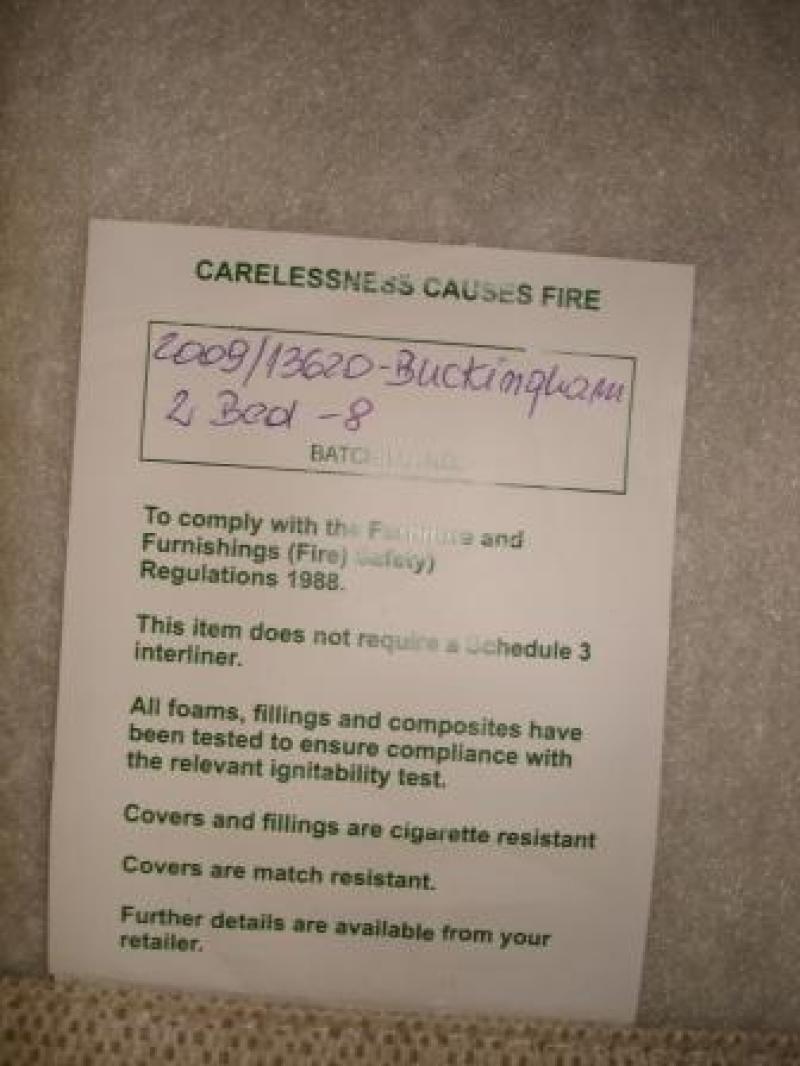 CARELESSNESS CAUSES FIRE
2009/13620-Buckingham
2 Bed -8
To comply with the Furniture and
Furnishings (Fire) Safety)
Regulations 1988.
This item does not require a Schedule 3
interliner.
All foams, fillings and composites have
been tested to ensure compliance with
the relevant ignitability test.
Covers and fillings are cigarette resistant
Covers are match resistant.
Further details are available from your
retailer.